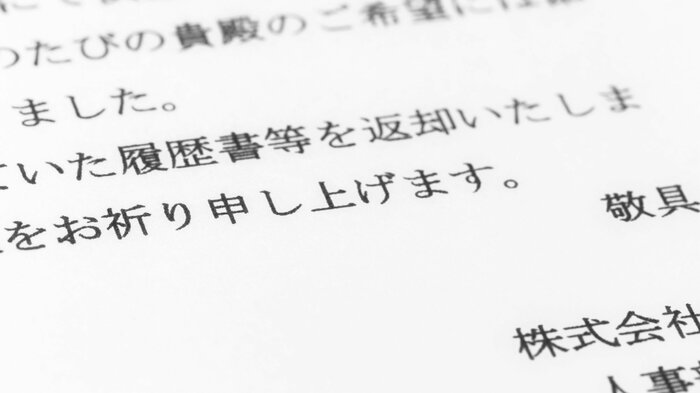 たびの貴殿のご希望に
ました。
いた履歴書等を返却いたしま
をお祈り申し上げます。
敬具
株式会社
人事